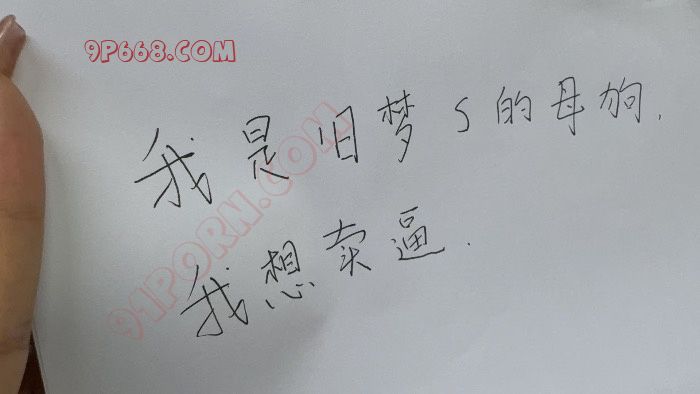 9P668.COM
我是旧梦S的母狗.
91PORN.COM
我想卖逼.